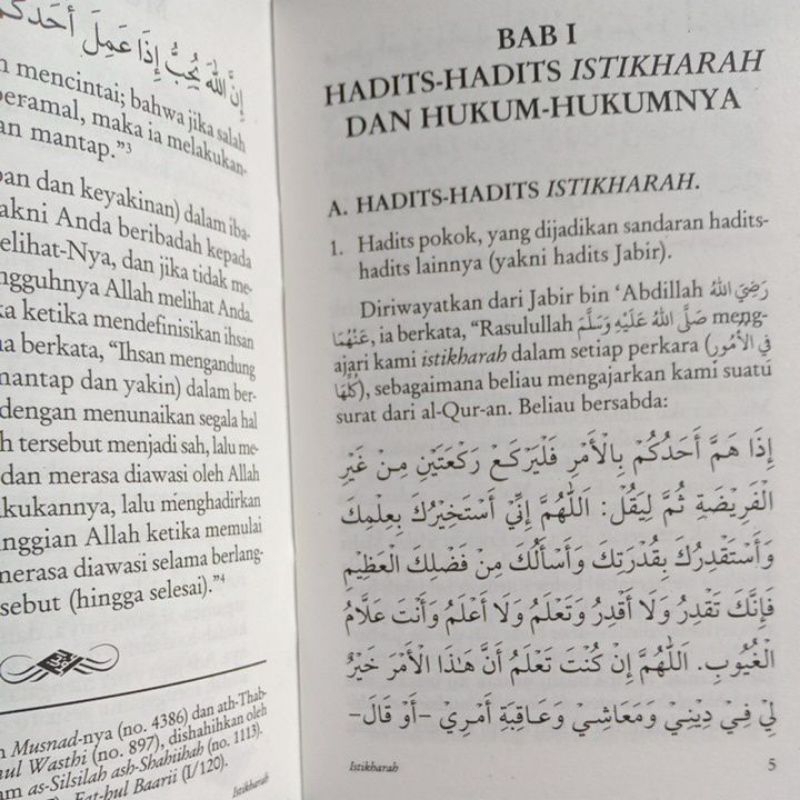 إِنَّ اللهَ يُحِبُّ إِذَا عَمِلَ أَحَدُكُمْ
mencintai; bahwa jika salah
beramal, maka ia melakukan-
mantap.”³
dan keyakinan) dalam iba-
Anda beribadah kepada
-Nya, dan jika tidak me-
Allah melihat Anda.
ketika mendefinisikan ihsan
berkata, “Ihsan mengandung
mantap dan yakin) dalam ber-
dengan menunaikan segala hal
tersebut menjadi sah, lalu me-
dan merasa diawasi oleh Allah
lalu menghadirkan
Allah ketika memulai
merasa diawasi selama berlang-
(hingga selesai).”⁴
Musnad-nya (no. 4386) dan ath-Thab-
Wasthi (no. 897), dishahihkan oleh
as-Silsilah ash-Shahiihah (no. 1113).
Fat-hul Baarii (I/120).
Istikharah
BAB I
HADITS-HADITS ISTIKHARAH
DAN HUKUM-HUKUMNYA
A. HADITS-HADITS ISTIKHARAH.
1. Hadits pokok, yang dijadikan sandaran hadits-
hadits lainnya (yakni hadits Jabir).
Diriwayatkan dari Jabir bin ‘Abdillah رَضِيَ اللهُ
عَنْهُمَا, ia berkata, “Rasulullah صَلَّى اللهُ عَلَيْهِ وَسَلَّمَ meng-
ajari kami istikharah dalam setiap perkara (فِي الْأُمُورِ
كُلِّهَا), sebagaimana beliau mengajarkan kami suatu
surat dari al-Qur-an. Beliau bersabda:
إِذَا هَمَّ أَحَدُكُمْ بِالْأَمْرِ فَلْيَرْكَعْ رَكْعَتَيْنِ مِنْ غَيْرِ
الْفَرِيْضَةِ ثُمَّ لْيَقُلْ: اَللّٰهُمَّ إِنِّيْ أَسْتَخِيْرُكَ بِعِلْمِكَ
وَأَسْتَقْدِرُكَ بِقُدْرَتِكَ وَأَسْأَلُكَ مِنْ فَضْلِكَ الْعَظِيْمِ
فَإِنَّكَ تَقْدِرُ وَلَا أَقْدِرُ وَتَعْلَمُ وَلَا أَعْلَمُ وَأَنْتَ عَلَّامُ
الْغُيُوْبِ. اَللّٰهُمَّ إِنْ كُنْتَ تَعْلَمُ أَنَّ هَذَا الْأَمْرَ خَيْرٌ
لِي فِيْ دِيْنِيْ وَمَعَاشِيْ وَعَاقِبَةِ أَمْرِيْ –أَوْ قَالَ–
Istikharah
5